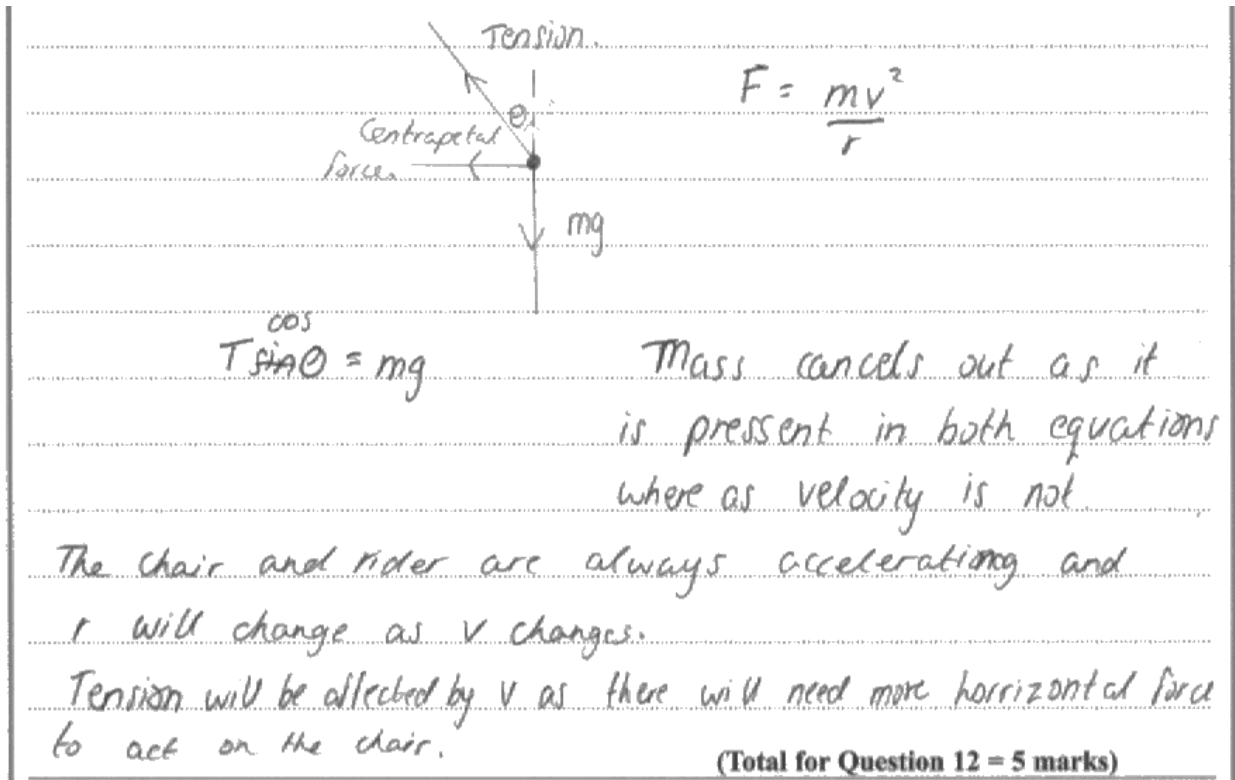 Tension.
F = mv²
r
θ
Centrapetal
force.
mg
cos
T sinθ = mg
Mass cancels out as it
is pressent in both equations
where as velocity is not.
The chair and rider are always accelerating and
r will change as v changes.
Tension will be affected by v as there will need more horrizontal force
to act on the chair.
(Total for Question 12 = 5 marks)